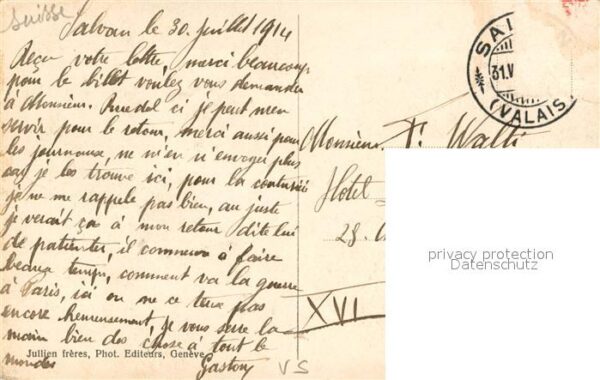 Suisse
Salvan le 30 juillet 1914
Reçu votre lettre, merci beaucoup
pour le billet voulez vous demander
à Monsieur. Ruedol ci je peut m'en
servir pour le retour, merci aussi pour
les journeaux, ne m'en n'envoyez plus
car je les trouve ici, pour la couturiè
je ne me rappele pas bien, au juste
je verait ça à mon retour dite lui
de patienter, il commence à faire
beaux temps, comment va la guerre
à Paris, ici on ne ce teux pas
encore heureusement, je vous serre la
main bien des chose à tout le
mondes Gaston
Jullien frères, Phot. Editeurs, Genève
VS
SAL
31.V
(VALAIS
Monsieur F. Walti
Hotel
28.
XVI
privacy protection
Datenschutz